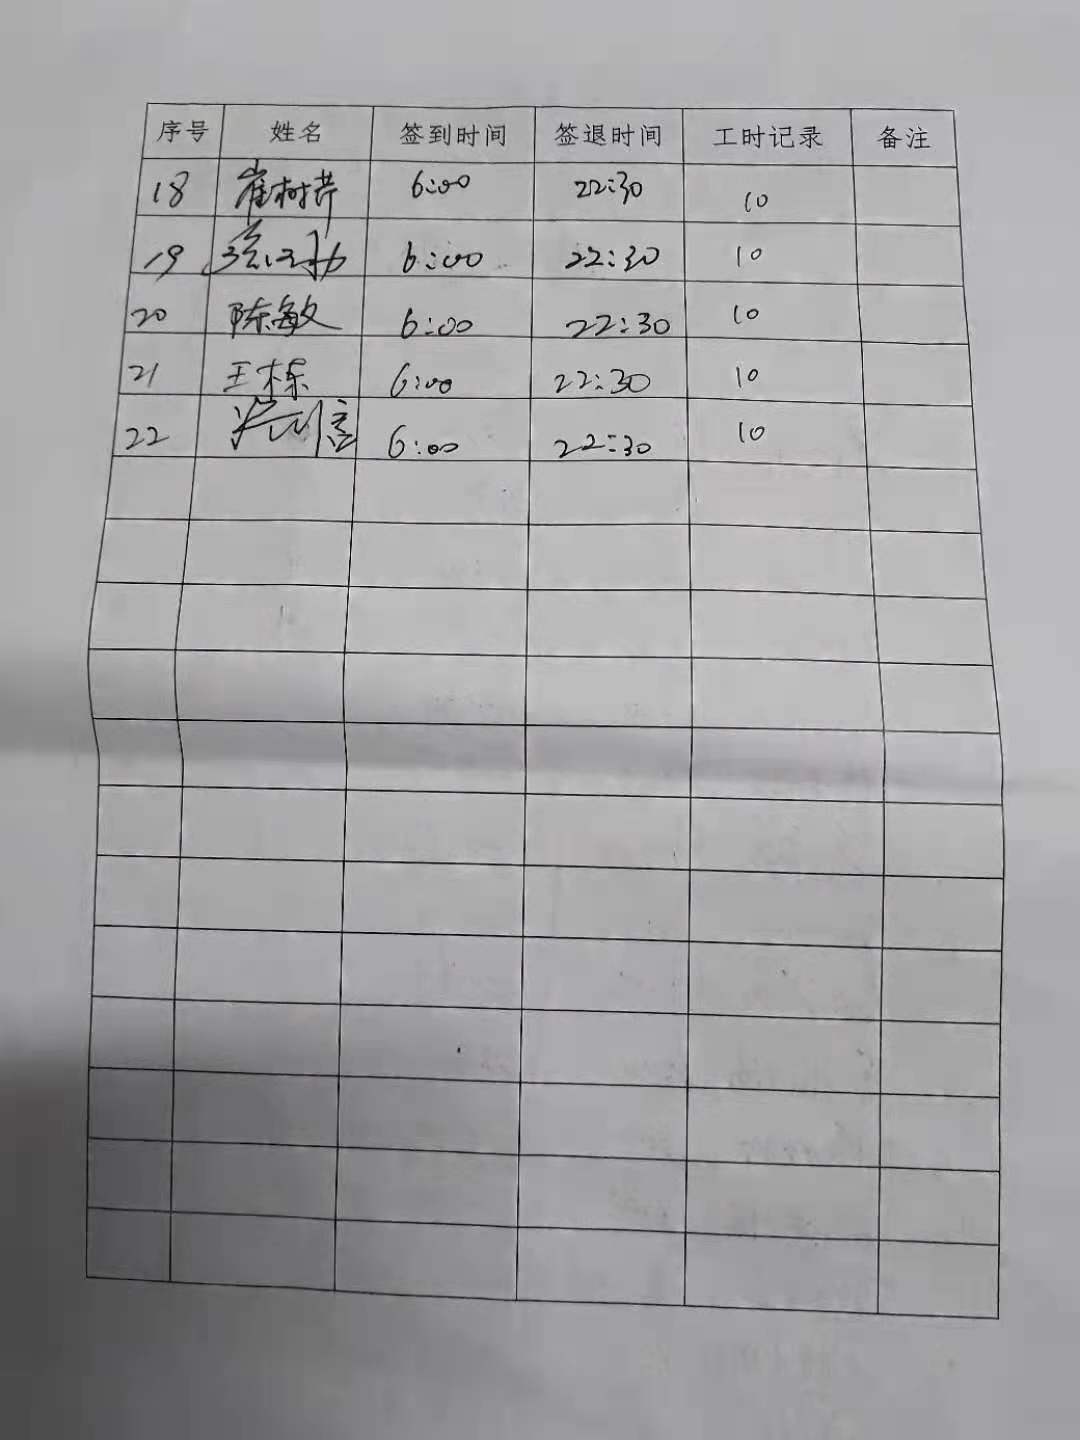 序号 姓名 签到时间 签退时间 工时记录 备注
18 崔树芹 6:00 22:30 10
19 6:00 22:30 10
20 陈敏 6:00 22:30 10
21 王栋 6:00 22:30 10
22 6:00 22:30 10